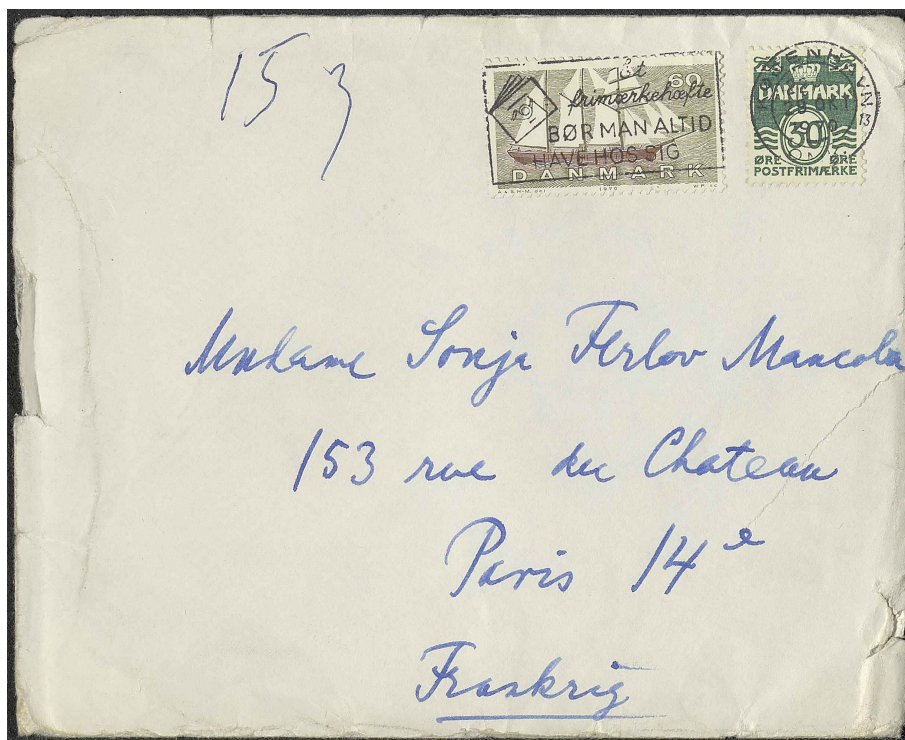 153
Et
frimærkehæfte
BØR MAN ALTID
HAVE HOS SIG
60
DANMARK
1970
KØBENHAVN
OKT
13
DANMARK
30
ØRE ØRE
POSTFRIMÆRKE
Madame Sonja Ferlov Mancoba
153 rue du Chateau
Paris 14e
Frankrig